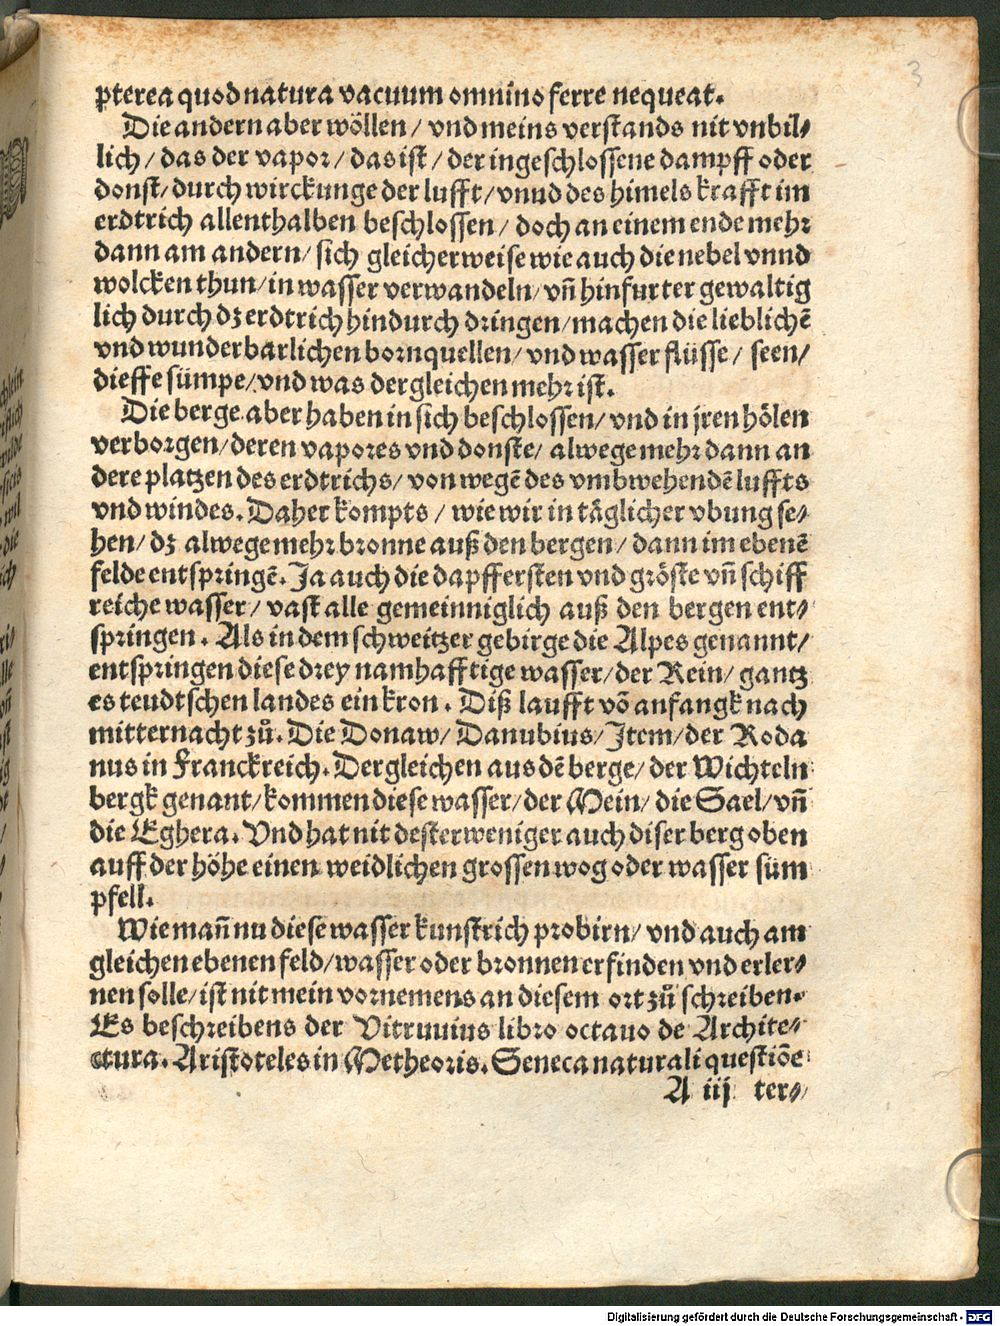 3
pterea quod natura vacuum omnino ferre nequeat.
Die andern aber wöllen / vnd meins verstands nit vnbil⸗
lich / das der vapor / das ist / der ingeschlossene dampff oder
donst / durch wirckunge der lufft / vnnd des himels krafft im
erdtrich allenthalben beschlossen / doch an einem ende mehr
dann am andern / sich gleicherweise wie auch die nebel vnnd
wolcken thun / in wasser verwandeln / vñ hinfurter gewaltig
lich durch dz erdtrich hindurch dringen / machen die lieblichē
vnd wunderbarlichen bornquellen / vnd wasser flüsse / seen /
dieffe sümpe / vnd was dergleichen mehr ist.
Die berge aber haben in sich beschlossen / vnd in jren hölen
verborgen / deren vapores vnd donste / alwege mehr dann an
dere platzen des erdtrichs / von wegē des vmbwehendē luffts
vnd windes. Daher kompts / wie wir in täglicher vbung se⸗
hen / dz alwege mehr bronne auß den bergen / dann im ebenē
felde entspringē. Ja auch die dapffersten vnd gröste vñ schiff
reiche wasser / vast alle gemeinniglich auß den bergen ent⸗
springen. Als in dem schweitzer gebirge die Alpes genannt /
entspringen diese drey namhafftige wasser / der Rein / gantz
es teudtschen landes ein kron. Diß laufft vō anfangk nach
mitternacht zů. Die Donaw / Danubius / Item / der Roda
nus in Franckreich. Dergleichen aus dē berge / der Wichteln
bergk genant / kommen diese wasser / der Mein / die Sael / vñ
die Eghera. Vnd hat nit desterweniger auch diser berg oben
auff der höhe einen weidlichen grossen wog oder wasser süm
pfell.
Wie mañ nu diese wasser kunstrich probirn / vnd auch am
gleichen ebenen feld / wasser oder bronnen erfinden vnd erler⸗
nen solle / ist nit mein vornemens an diesem ort zů schreiben.
Es beschreibens der Vitruuius libro octauo de Archite⸗
ctura. Aristoteles in Metheoris. Seneca naturali questiōe
A iij ter⸗
Digitalisierung gefördert durch die Deutsche Forschungsgemeinschaft - DFG